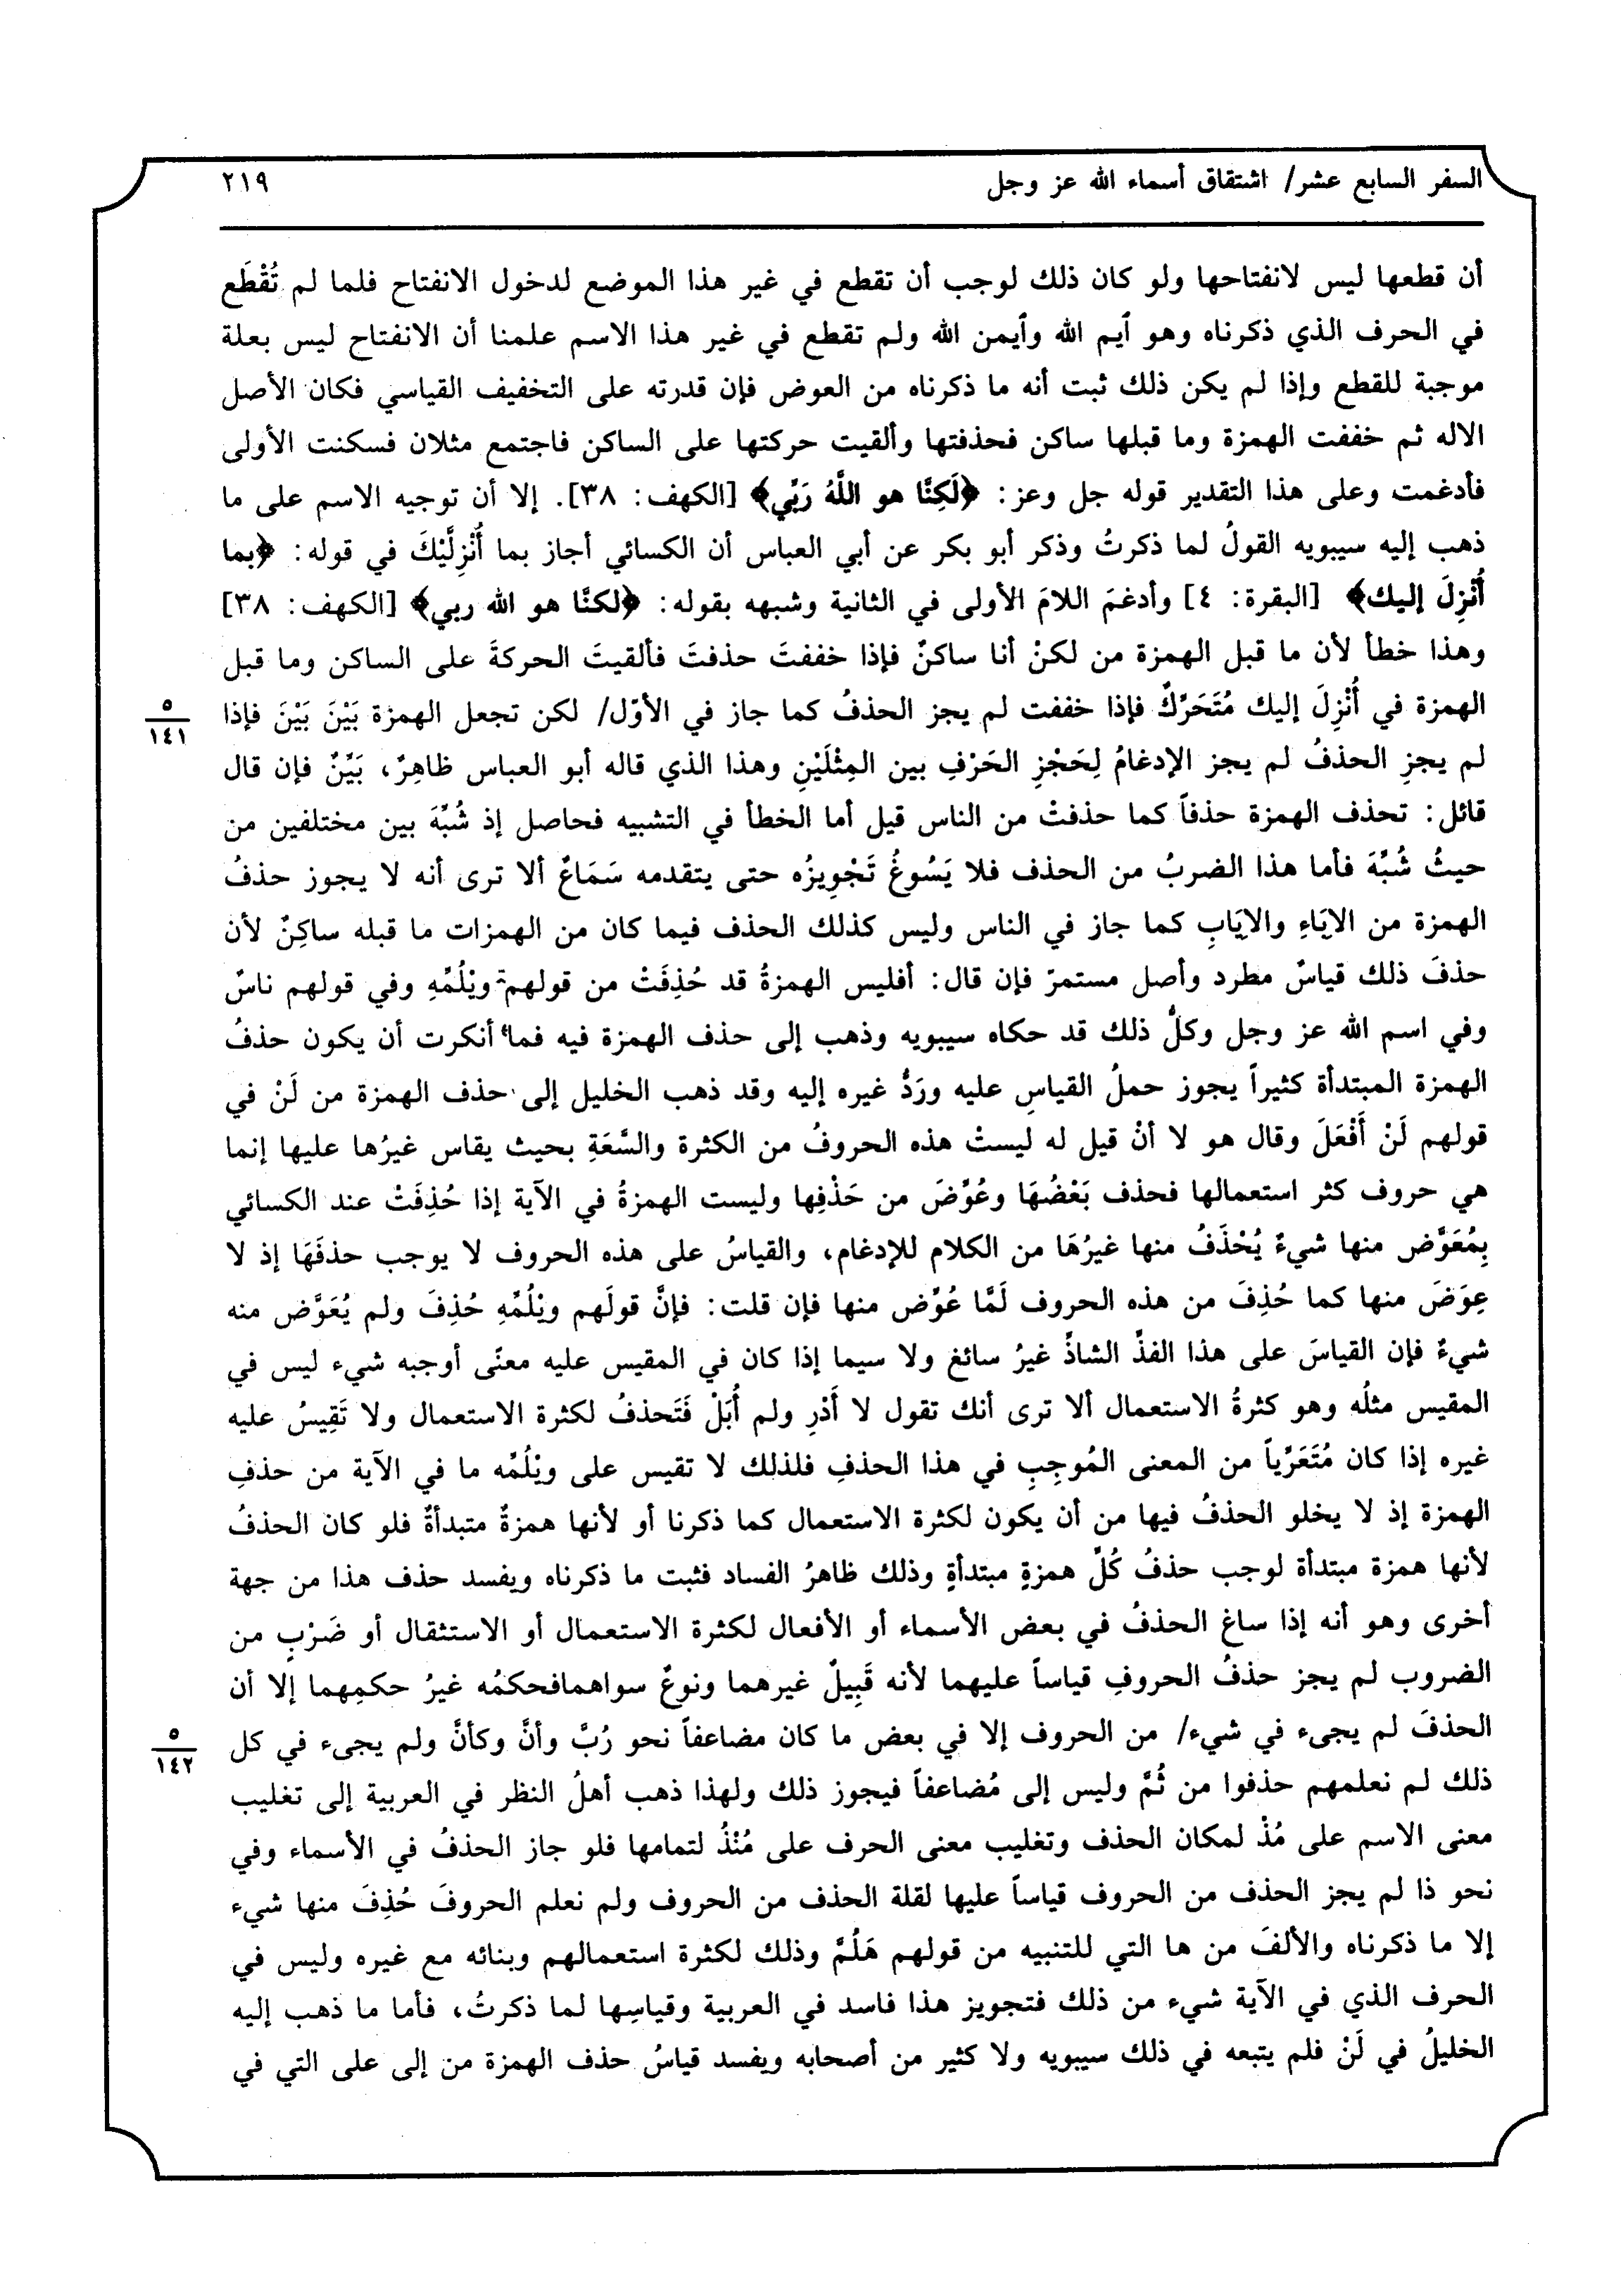 السفر السابع عشر/ اشتقاق أسماء الله عز وجل ٢١٩
أن قطعها ليس لانفتاحها ولو كان ذلك لوجب أن تقطع في غير هذا الموضع لدخول الانفتاح فلما لم تُقْطَع
في الحرف الذي ذكرناه وهو أَيم الله وأَيمن الله ولم تقطع في غير هذا الاسم علمنا أن الانفتاح ليس بعلة
موجبة للقطع وإذا لم يكن ذلك ثبت أنه ما ذكرناه من العوض فإن قدرته على التخفيف القياسي فكان الأصل
الاله ثم خففت الهمزة وما قبلها ساكن فحذفتها وألقيت حركتها على الساكن فاجتمع مثلان فسكنت الأولى
فأدغمت وعلى هذا التقدير قوله جل وعز: ﴿لَكِنَّا هو اللَّهُ رَبِّي﴾ [الكهف: ٣٨]. إلا أن توجيه الاسم على ما
ذهب إليه سيبويه القولُ لما ذكرتُ وذكر أبو بكر عن أبي العباس أن الكسائي أجاز بما أُنْزِلَّيْكَ في قوله: ﴿بما
أُنْزِلَ إليك﴾ [البقرة: ٤] وأدغمَ اللامَ الأولى في الثانية وشبهه بقوله: ﴿لكنَّا هو الله ربي﴾ [الكهف: ٣٨]
وهذا خطأ لأن ما قبل الهمزة من لكنْ أنا ساكنٌ فإذا خففتَ حذفتَ فألقيتَ الحركةَ على الساكن وما قبل
الهمزة في أُنْزِلَ إليك مُتَحَرِّكٌ فإذا خففت لم يجز الحذفُ كما جاز في الأوّل/ لكن تجعل الهمزة بَيْنَ بَيْنَ فإذا
٥
١٤١
لم يجزِ الحذفُ لم يجز الإدغامُ لِحَجْزِ الحَرْفِ بين المِثْلَيْنِ وهذا الذي قاله أبو العباس ظاهِرٌ، بَيِّنٌ فإن قال
قائل: تحذف الهمزة حذفاً كما حذفتْ من الناس قيل أما الخطأ في التشبيه فحاصل إذ شُبِّهَ بين مختلفين من
حيثُ شُبِّهَ فأما هذا الضربُ من الحذف فلا يَسُوغُ تَجْوِيزُه حتى يتقدمه سَمَاعٌ ألا ترى أنه لا يجوز حذفُ
الهمزة من الايَاءِ والايَابِ كما جاز في الناس وليس كذلك الحذف فيما كان من الهمزات ما قبله ساكِنٌ لأن
حذفَ ذلك قياسٌ مطرد وأصل مستمرّ فإن قال: أفليس الهمزةُ قد حُذِفَتْ من قولهم ويْلُمِّهِ وفي قولهم ناسٌ
وفي اسم الله عز وجل وكلُّ ذلك قد حكاه سيبويه وذهب إلى حذف الهمزة فيه فما أنكرت أن يكون حذفُ
الهمزة المبتدأة كثيراً يجوز حملُ القياسِ عليه ورَدُّ غيره إليه وقد ذهب الخليل إلى حذف الهمزة من لَنْ في
قولهم لَنْ أَفْعَلَ وقال هو لا أنْ قيل له ليستْ هذه الحروفُ من الكثرة والسَّعَةِ بحيث يقاس غيرُها عليها إنما
هي حروف كثر استعمالها فحذف بَعْضُهَا وعُوِّضَ من حَذْفِها وليست الهمزةُ في الآية إذا حُذِفَتْ عند الكسائي
بِمُعَوَّض منها شيءٌ يُحْذَفُ منها غيرُهَا من الكلام للإدغام، والقياسُ على هذه الحروف لا يوجب حذفَهَا إذ لا
عِوَضَ منها كما حُذِفَ من هذه الحروف لَمَّا عُوِّض منها فإن قلت: فإنَّ قولَهم ويْلُمِّهِ حُذِفَ ولم يُعَوَّض منه
شيءٌ فإن القياسَ على هذا الفذِّ الشاذِّ غيرُ سائغ ولا سيما إذا كان في المقيس عليه معنًى أوجبه شيء ليس في
المقيس مثلُه وهو كثرةُ الاستعمال ألا ترى أنك تقول لا أَدْرِ ولم أُبَلْ فَتَحذفُ لكثرة الاستعمال ولا تَقِيسُ عليه
غيره إذا كان مُتَعَرِّياً من المعنى المُوجِبِ في هذا الحذفِ فلذلك لا تقيس على ويْلُمِّه ما في الآية من حذفِ
الهمزة إذ لا يخلو الحذفُ فيها من أن يكون لكثرة الاستعمال كما ذكرنا أو لأنها همزةٌ متبدأةٌ فلو كان الحذفُ
لأنها همزة مبتدأة لوجب حذفُ كُلِّ همزةٍ مبتدأةٍ وذلك ظاهرُ الفساد فثبت ما ذكرناه ويفسد حذف هذا من جهة
أخرى وهو أنه إذا ساغ الحذفُ في بعض الأسماء أو الأفعال لكثرة الاستعمال أو الاستثقال أو ضَرْبٍ من
الضروب لم يجز حذفُ الحروفِ قياساً عليهما لأنه قَبِيلٌ غيرهما ونوعٌ سواهمافحكمُه غيرُ حكمِهما إلا أن
الحذفَ لم يجىء في شيء/ من الحروف إلا في بعض ما كان مضاعفاً نحو رُبَّ وأنَّ وكأنَّ ولم يجىء في كل
٥
١٤٢
ذلك لم نعلمهم حذفوا من ثُمَّ وليس إلى مُضاعفاً فيجوز ذلك ولهذا ذهب أهلُ النظر في العربية إلى تغليب
معنى الاسم على مُذْ لمكان الحذف وتغليب معنى الحرف على مُنْذُ لتمامها فلو جاز الحذفُ في الأسماء وفي
نحو ذا لم يجز الحذف من الحروف قياساً عليها لقلة الحذف من الحروف ولم نعلم الحروفَ حُذِفَ منها شيء
إلا ما ذكرناه والألفَ من ها التي للتنبيه من قولهم هَلُمَّ وذلك لكثرة استعمالهم وبنائه مع غيره وليس في
الحرف الذي في الآية شيء من ذلك فتجويز هذا فاسد في العربية وقياسِها لما ذكرتُ، فأما ما ذهب إليه
الخليلُ في لَنْ فلم يتبعه في ذلك سيبويه ولا كثير من أصحابه ويفسد قياسُ حذف الهمزة من إلى على التي في